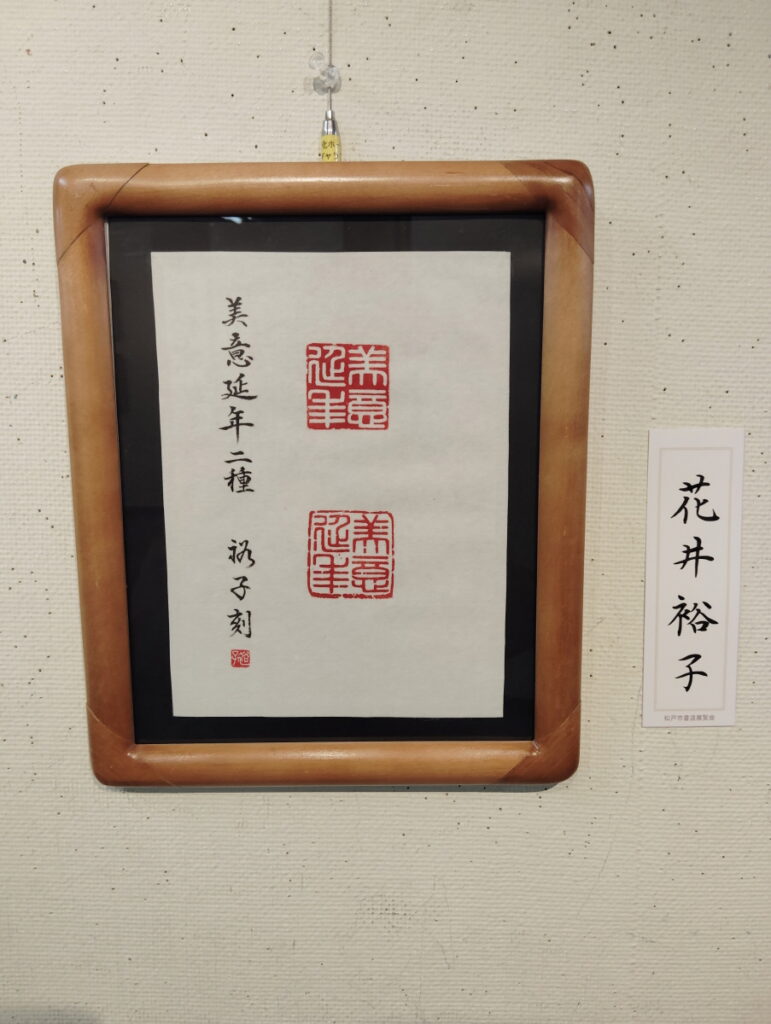 美意延年
美意延年
美意延年二種 裕子刻
裕子
花井裕子
松戸市書道展覧会